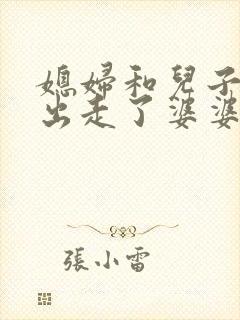 媳婦和兒子
出走了婆婆
張小雷